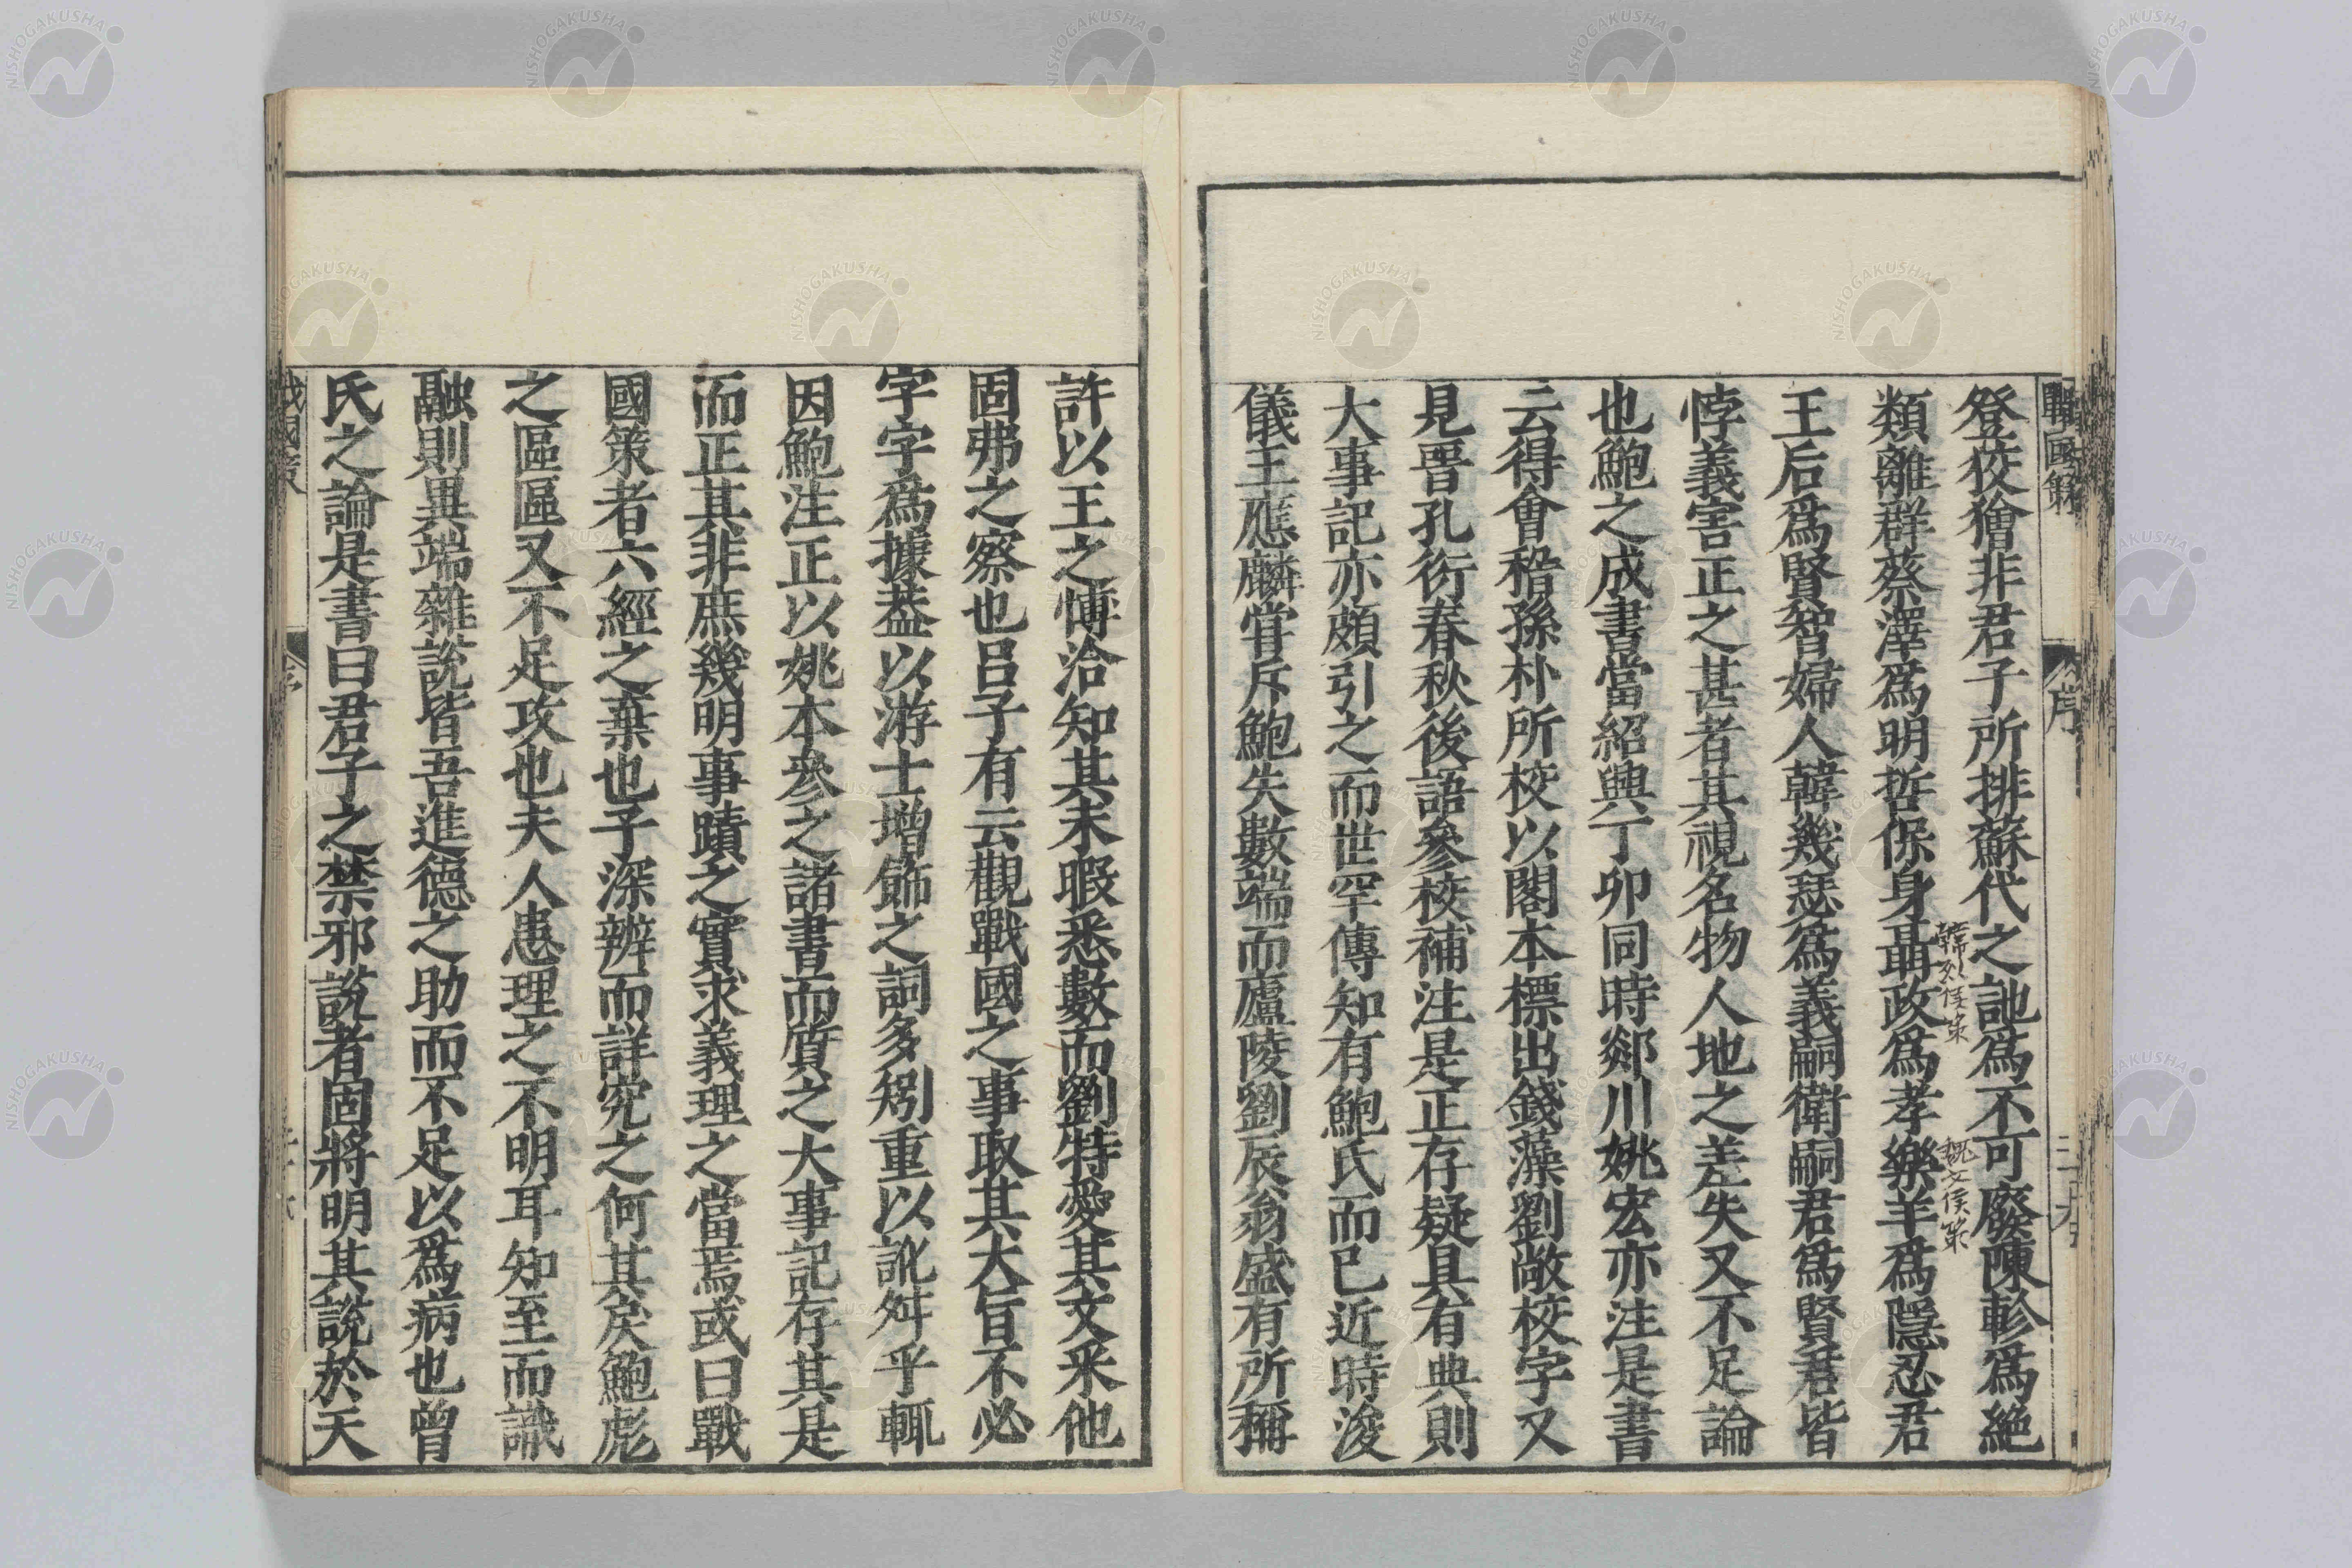 登狡獪非君子所排蘇代之訑爲不可廢陳軫爲絕
類離群蔡澤爲明哲保身聶政爲孝樂羊爲隱忍君
韓烈侯策
魏文侯策
王后爲賢智婦人韓幾瑟爲義嗣衛嗣君爲賢君皆
悖義害正之甚者其視名物人地之差失又不足論
也鮑之成書當紹興丁卯同時郯川姚宏亦注是書
云得會稽孫朴所校以閣本標出錢藻劉敞校字又
見晉孔衍春秋後語參校補注是正存疑具有典則
大事記亦頗引之而世罕傳知有鮑氏而已近時浚
儀王應麟甞斥鮑失數端而廬陵劉辰翁盛有所稱
許以王之愽洽知其未暇悉數而劉特愛其文采他
固弗之察也呂子有云觀戰國之事取其大旨不必
字字爲據葢以游士增飾之詞多矧重以訛舛乎輒
因鮑注正以姚本參之諸書而質之大事記存其是
而正其非庶幾明事蹟之實求義理之當焉或曰戰
國策者六經之棄也子深辨而詳究之何其戾鮑彪
之區區又不足攻也夫人患理之不明耳知至而識
融則異端雜說皆吾進德之助而不足以爲病也曾
氏之論是書曰君子之禁邪說者固將明其說於天
戰國策
序